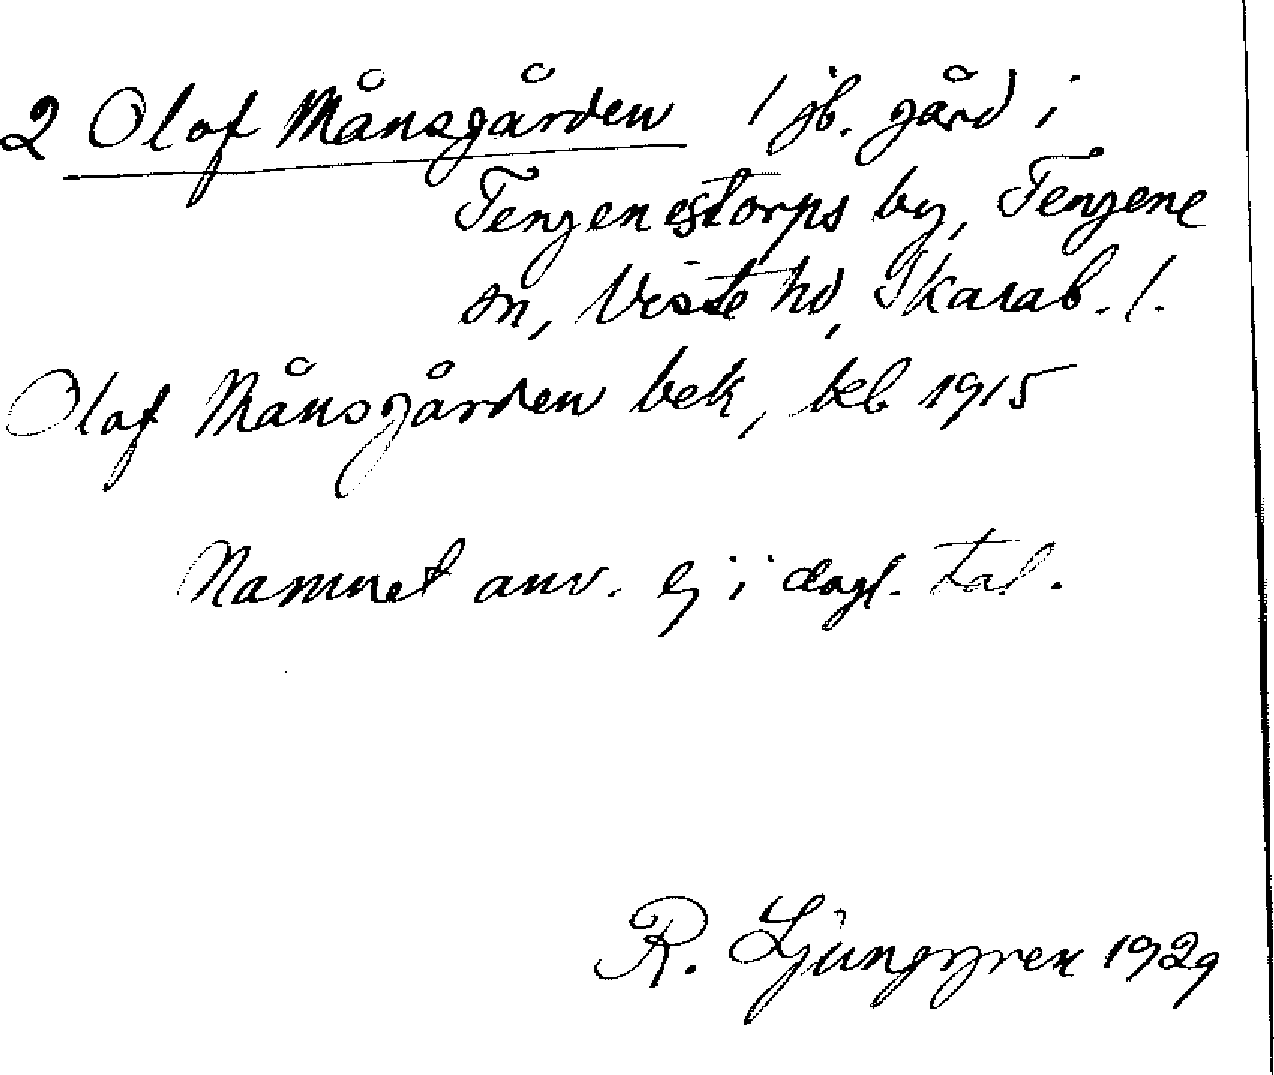 2 Olof Månsgården / jb. gård i
Tengenestorps by, Tengene
sn, Viste hd, Skarab. /.
Olof Månsgården bek, kb 1915
Namnet anv. ej i dagl. tal.
R. Ljunggren 1929